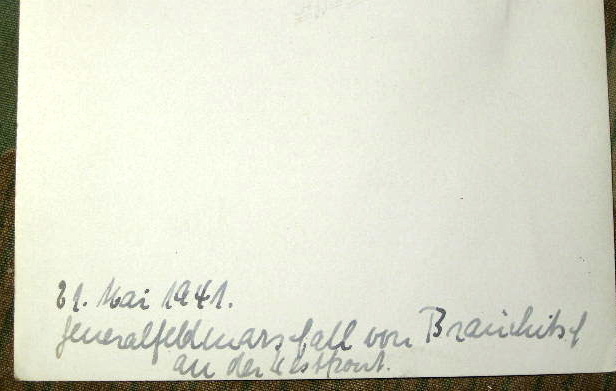 21. Mai 1941.
Generalfeldmarschall von Brauchitsch
an der Westfront.